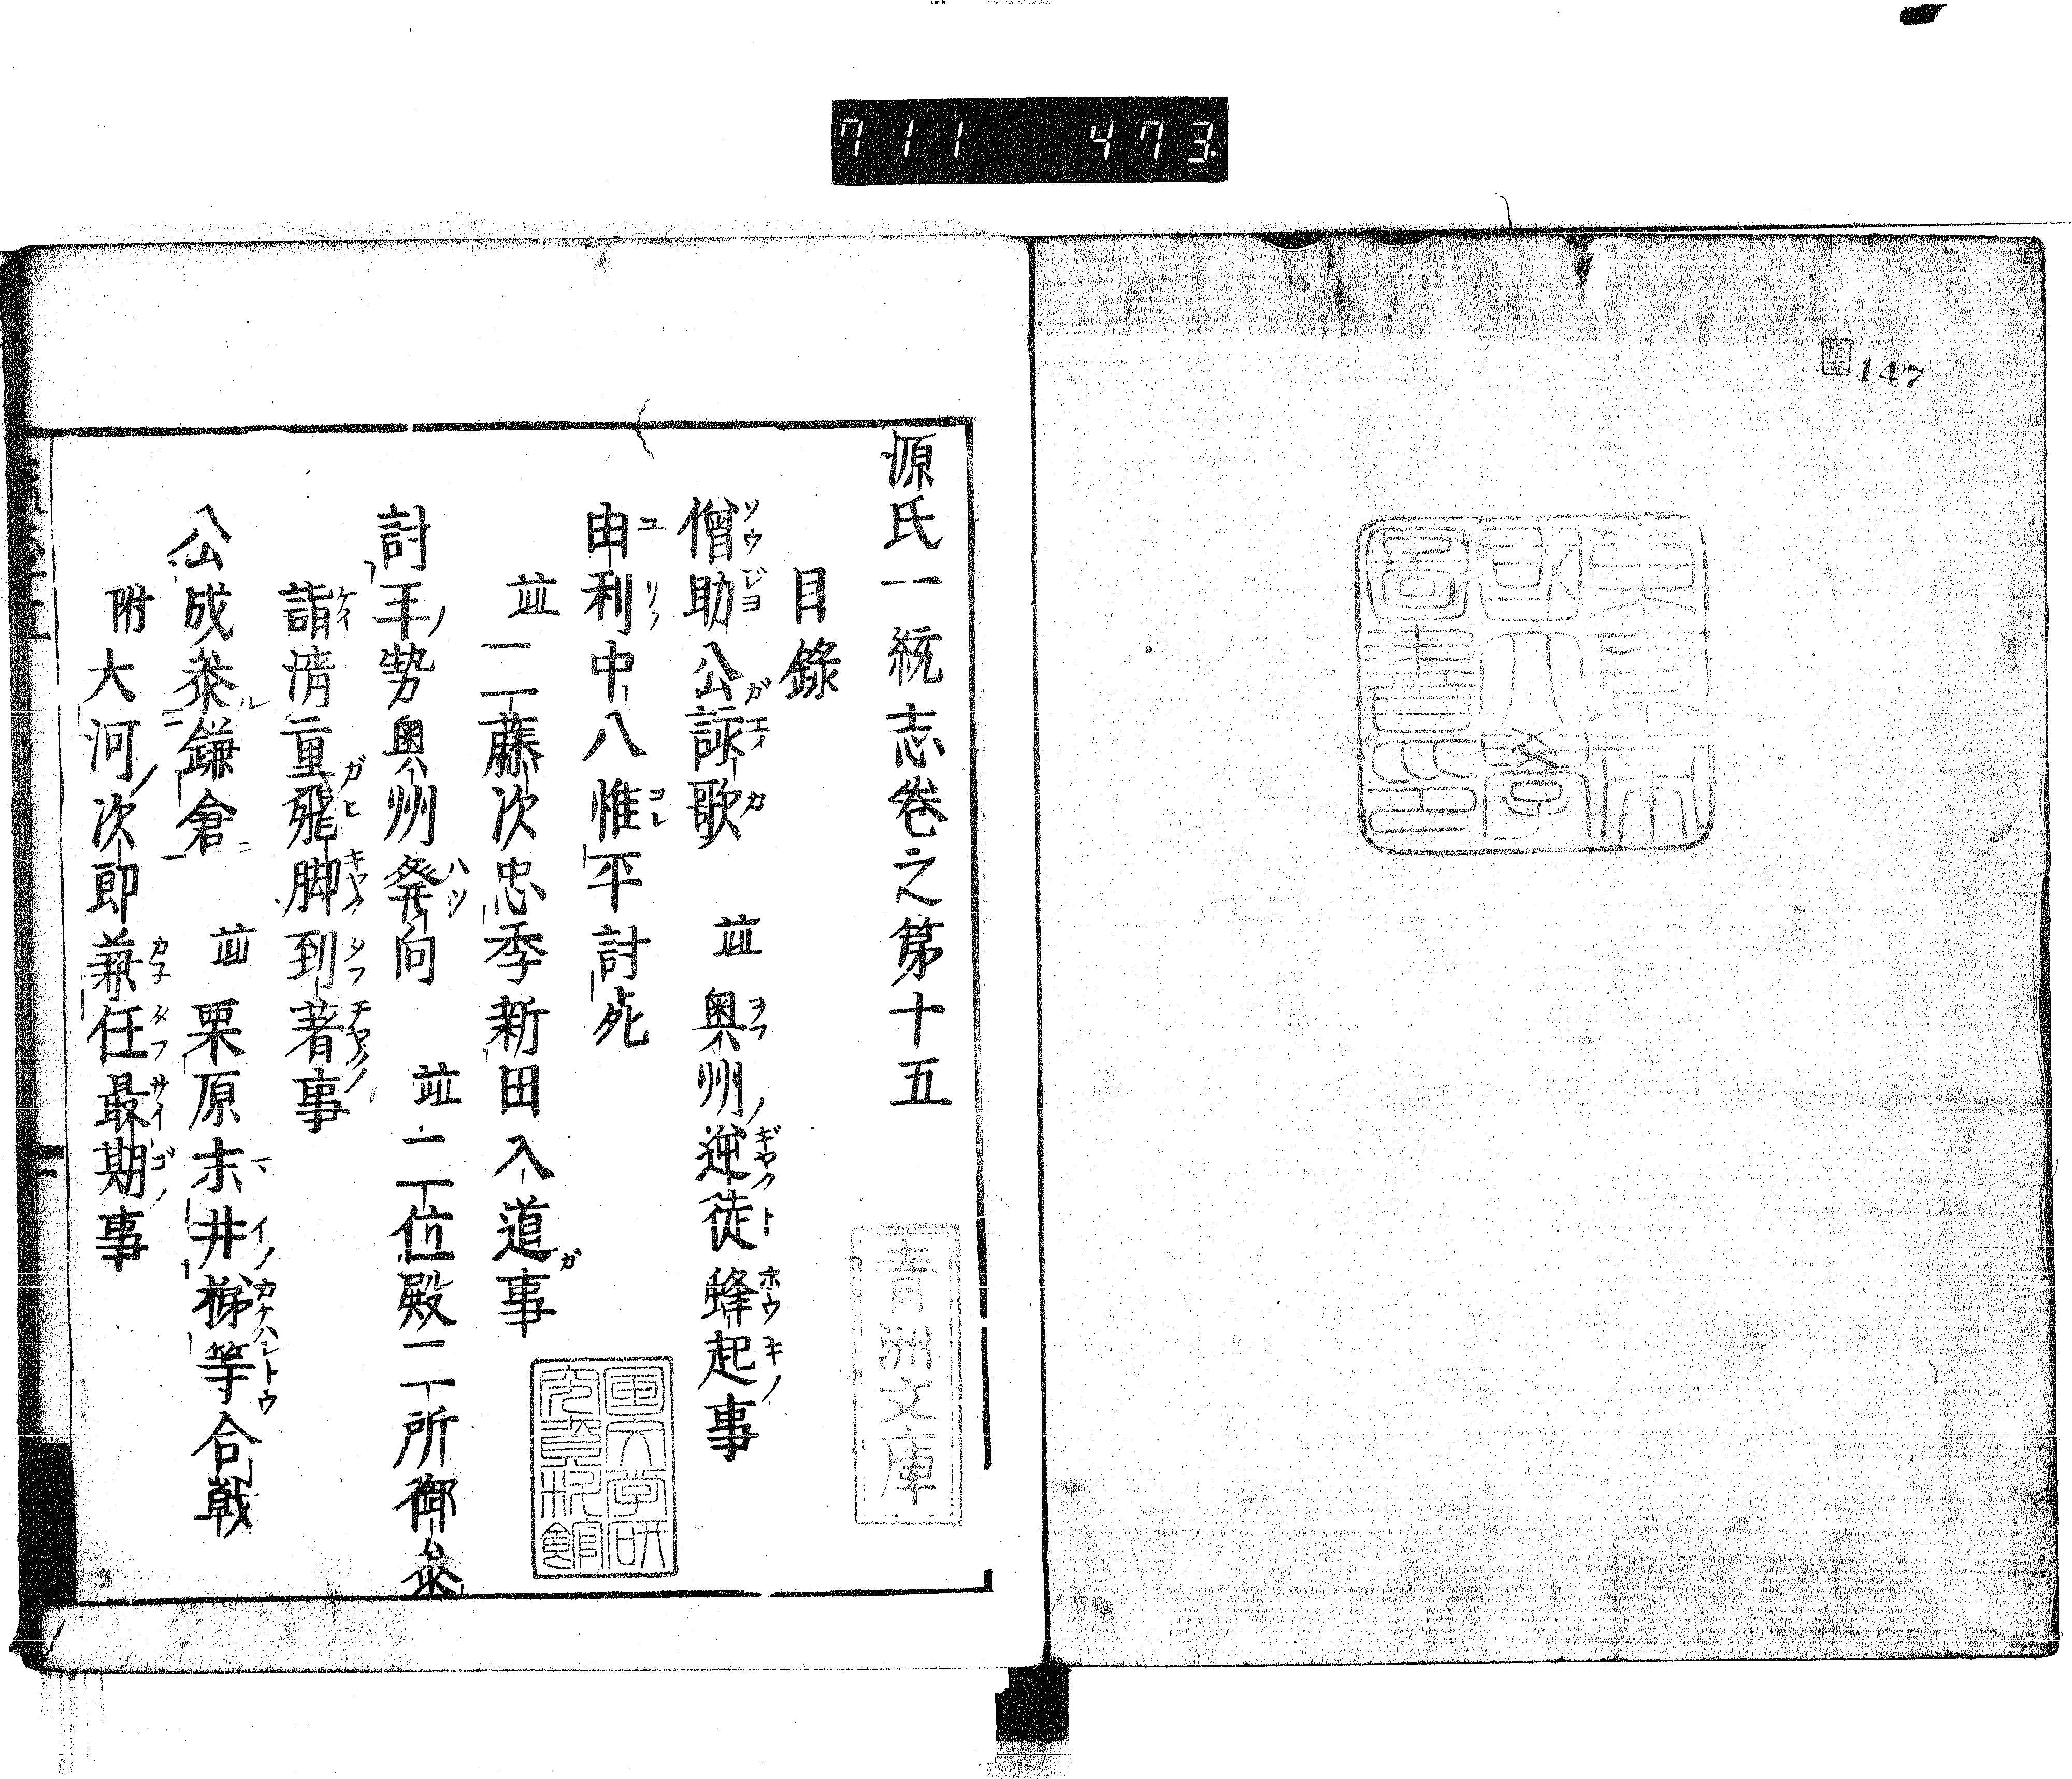 711 473
147
東京帝
國大學
圖書印
源氏一統志巻之第十五
目錄
僧助公詠歌 並 奥州逆徒蜂起事
由利中八惟平討死
並 二藤次忠季新田入道事
討手勢奥州発向 並 二位殿二所御参
詣清重飛脚到著事
公成参鎌倉 並 栗原末井梯等合戦
附 大河次郎兼任最期事
青洲文庫
国文学研
究資料館